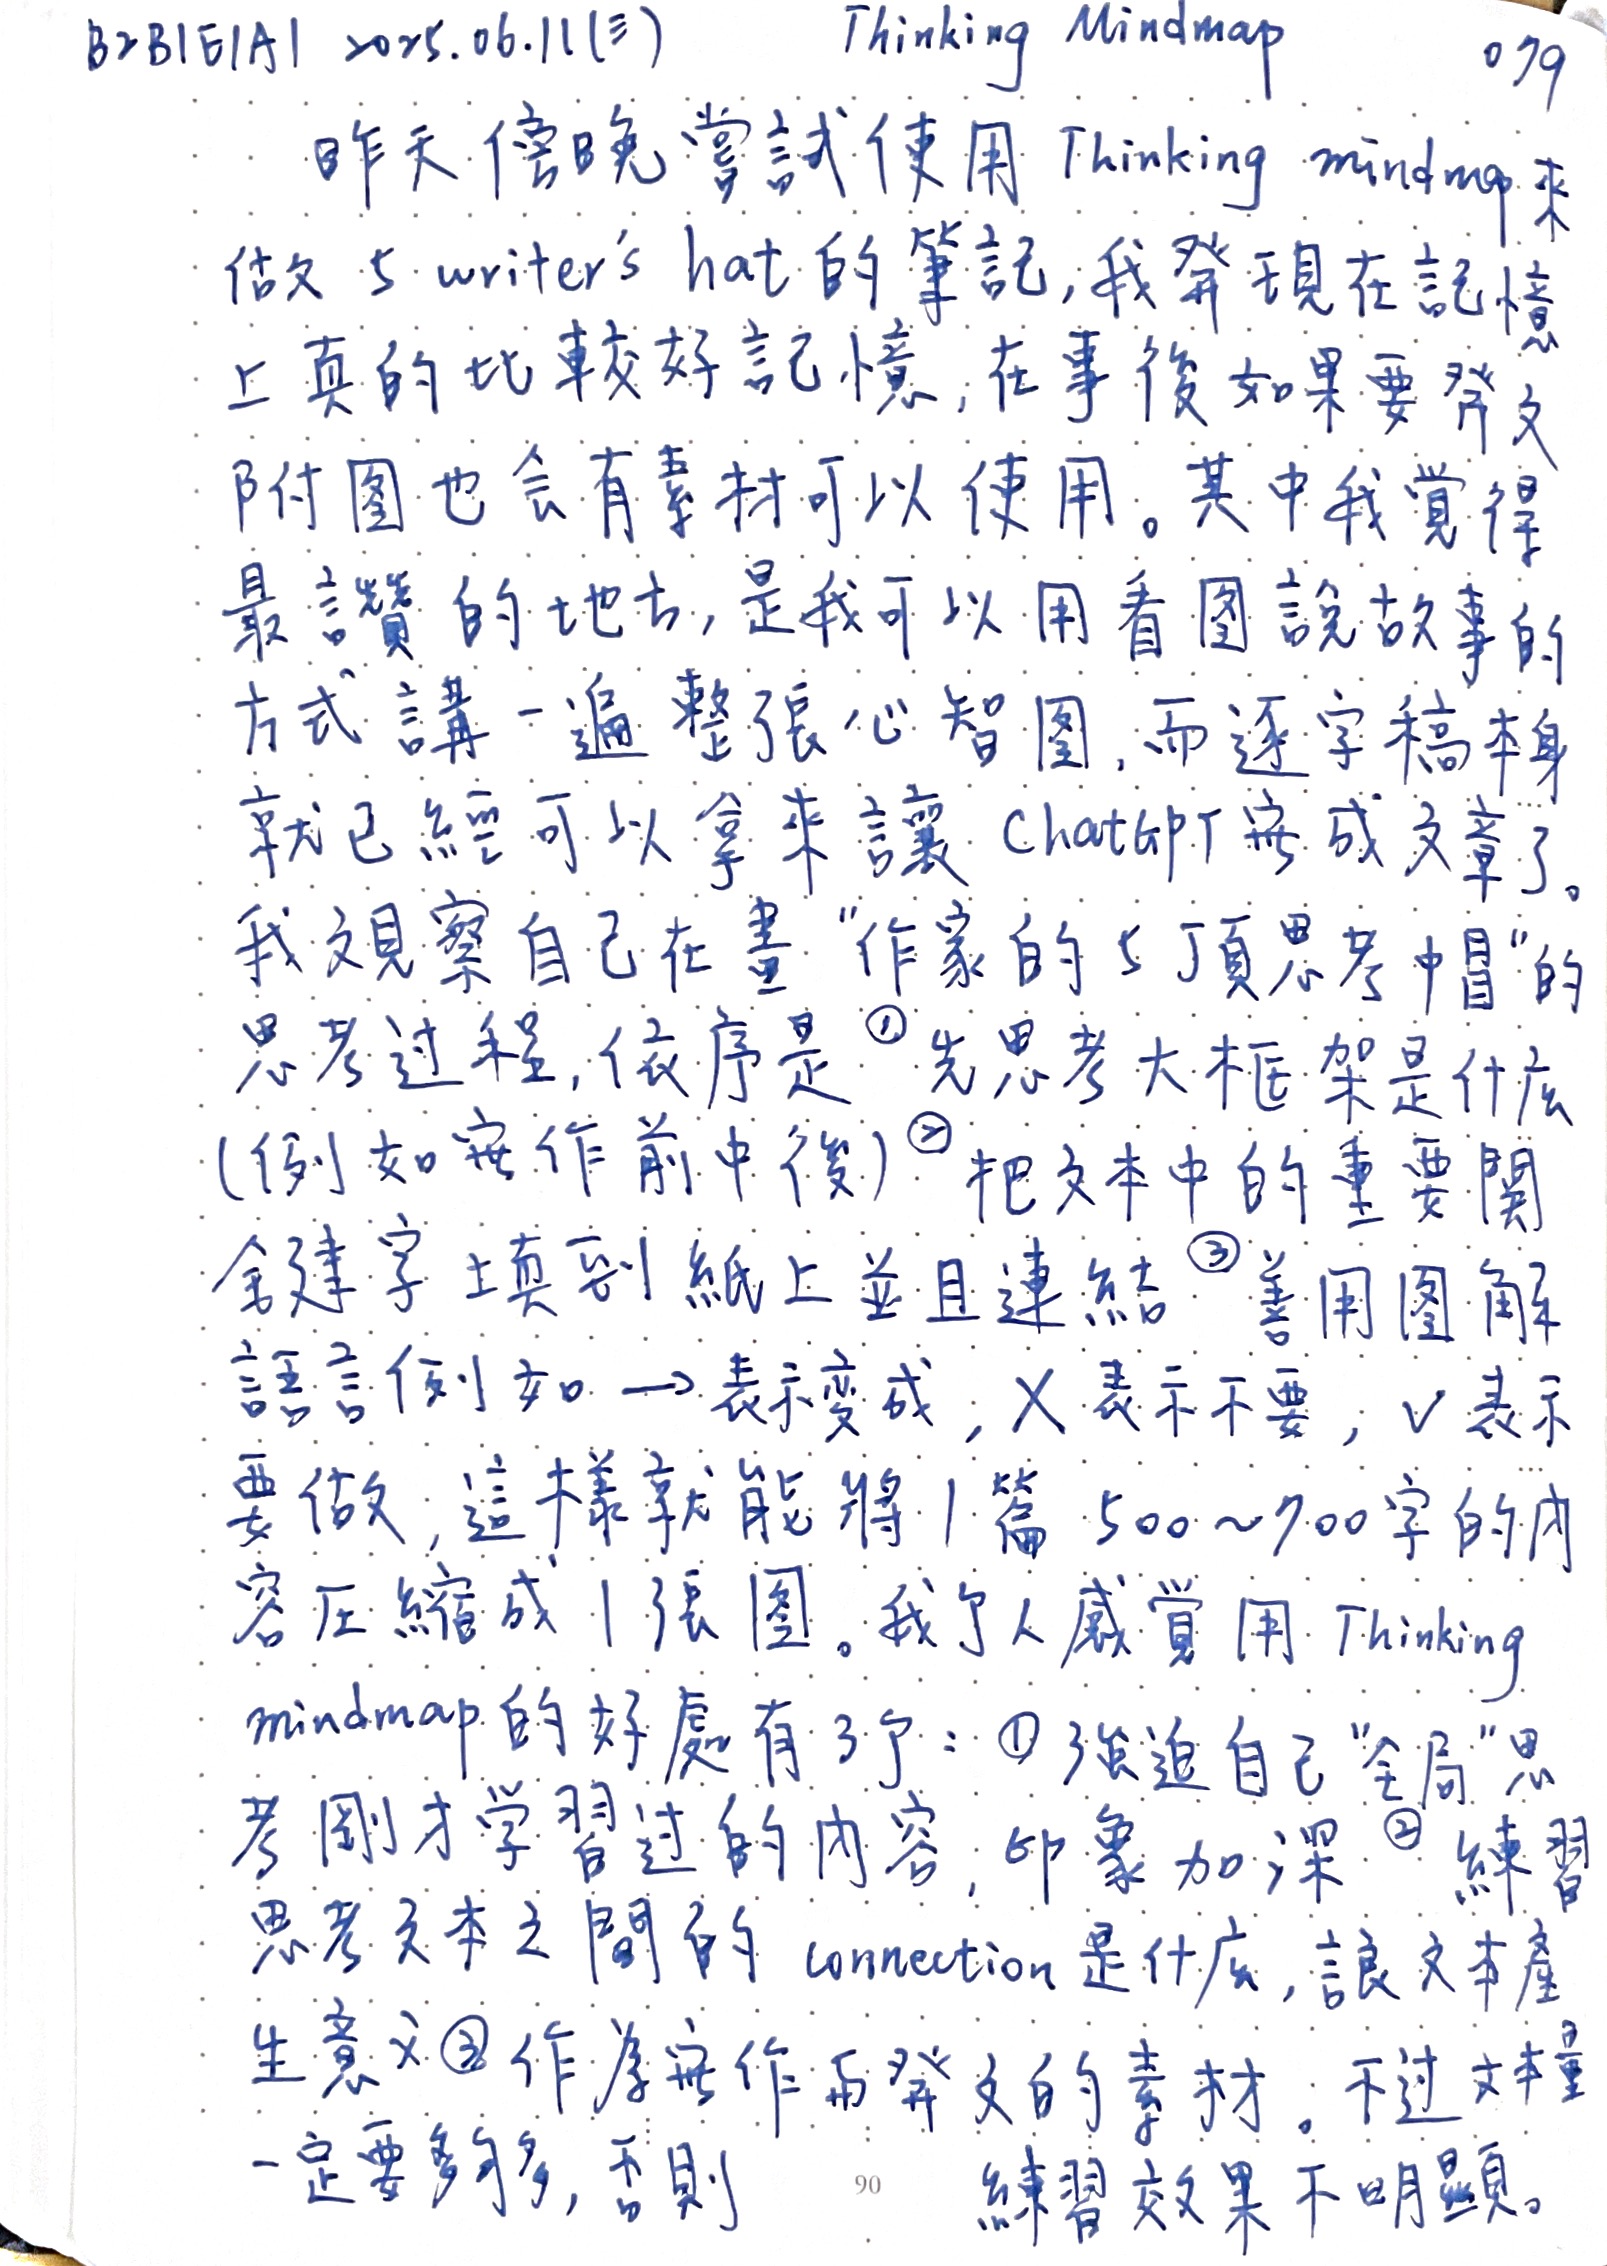 B2B1E1A1 2025.06.11(三) Thinking Mindmap 079
昨天傍晚嘗試使用 Thinking mindmap 來
做 5 writer's hat 的筆記,我發現在記憶
上真的比較好記憶,在事後如果要發文
附圖也会有素材可以使用。其中我覺得
最讚的地方,是我可以用看图說故事的
方式講一遍整張心智图,而逐字稿本身
就已經可以拿來讓 ChatGPT 寫成文章了。
我觀察自己在畫"作家的5頂思考帽"的
思考过程,依序是①先思考大框架是什么
(例如寫作前中後)②把文本中的重要關
鍵字填到紙上並且連結③善用图解
語言例如→表示變成,X表示不要,✓表示
要做,這樣就能將1篇500~700字的內
容压縮成1張图。我个人感覺用 Thinking
mindmap的好處有3个:①強迫自己"全局"思
考剛才学習过的內容,印象加深②練習
思考文本之間的 connection 是什么,讓文本產
生意义③作為寫作再發文的素材。不过文本量
一定要夠多,否則 練習效果不明顯。
90